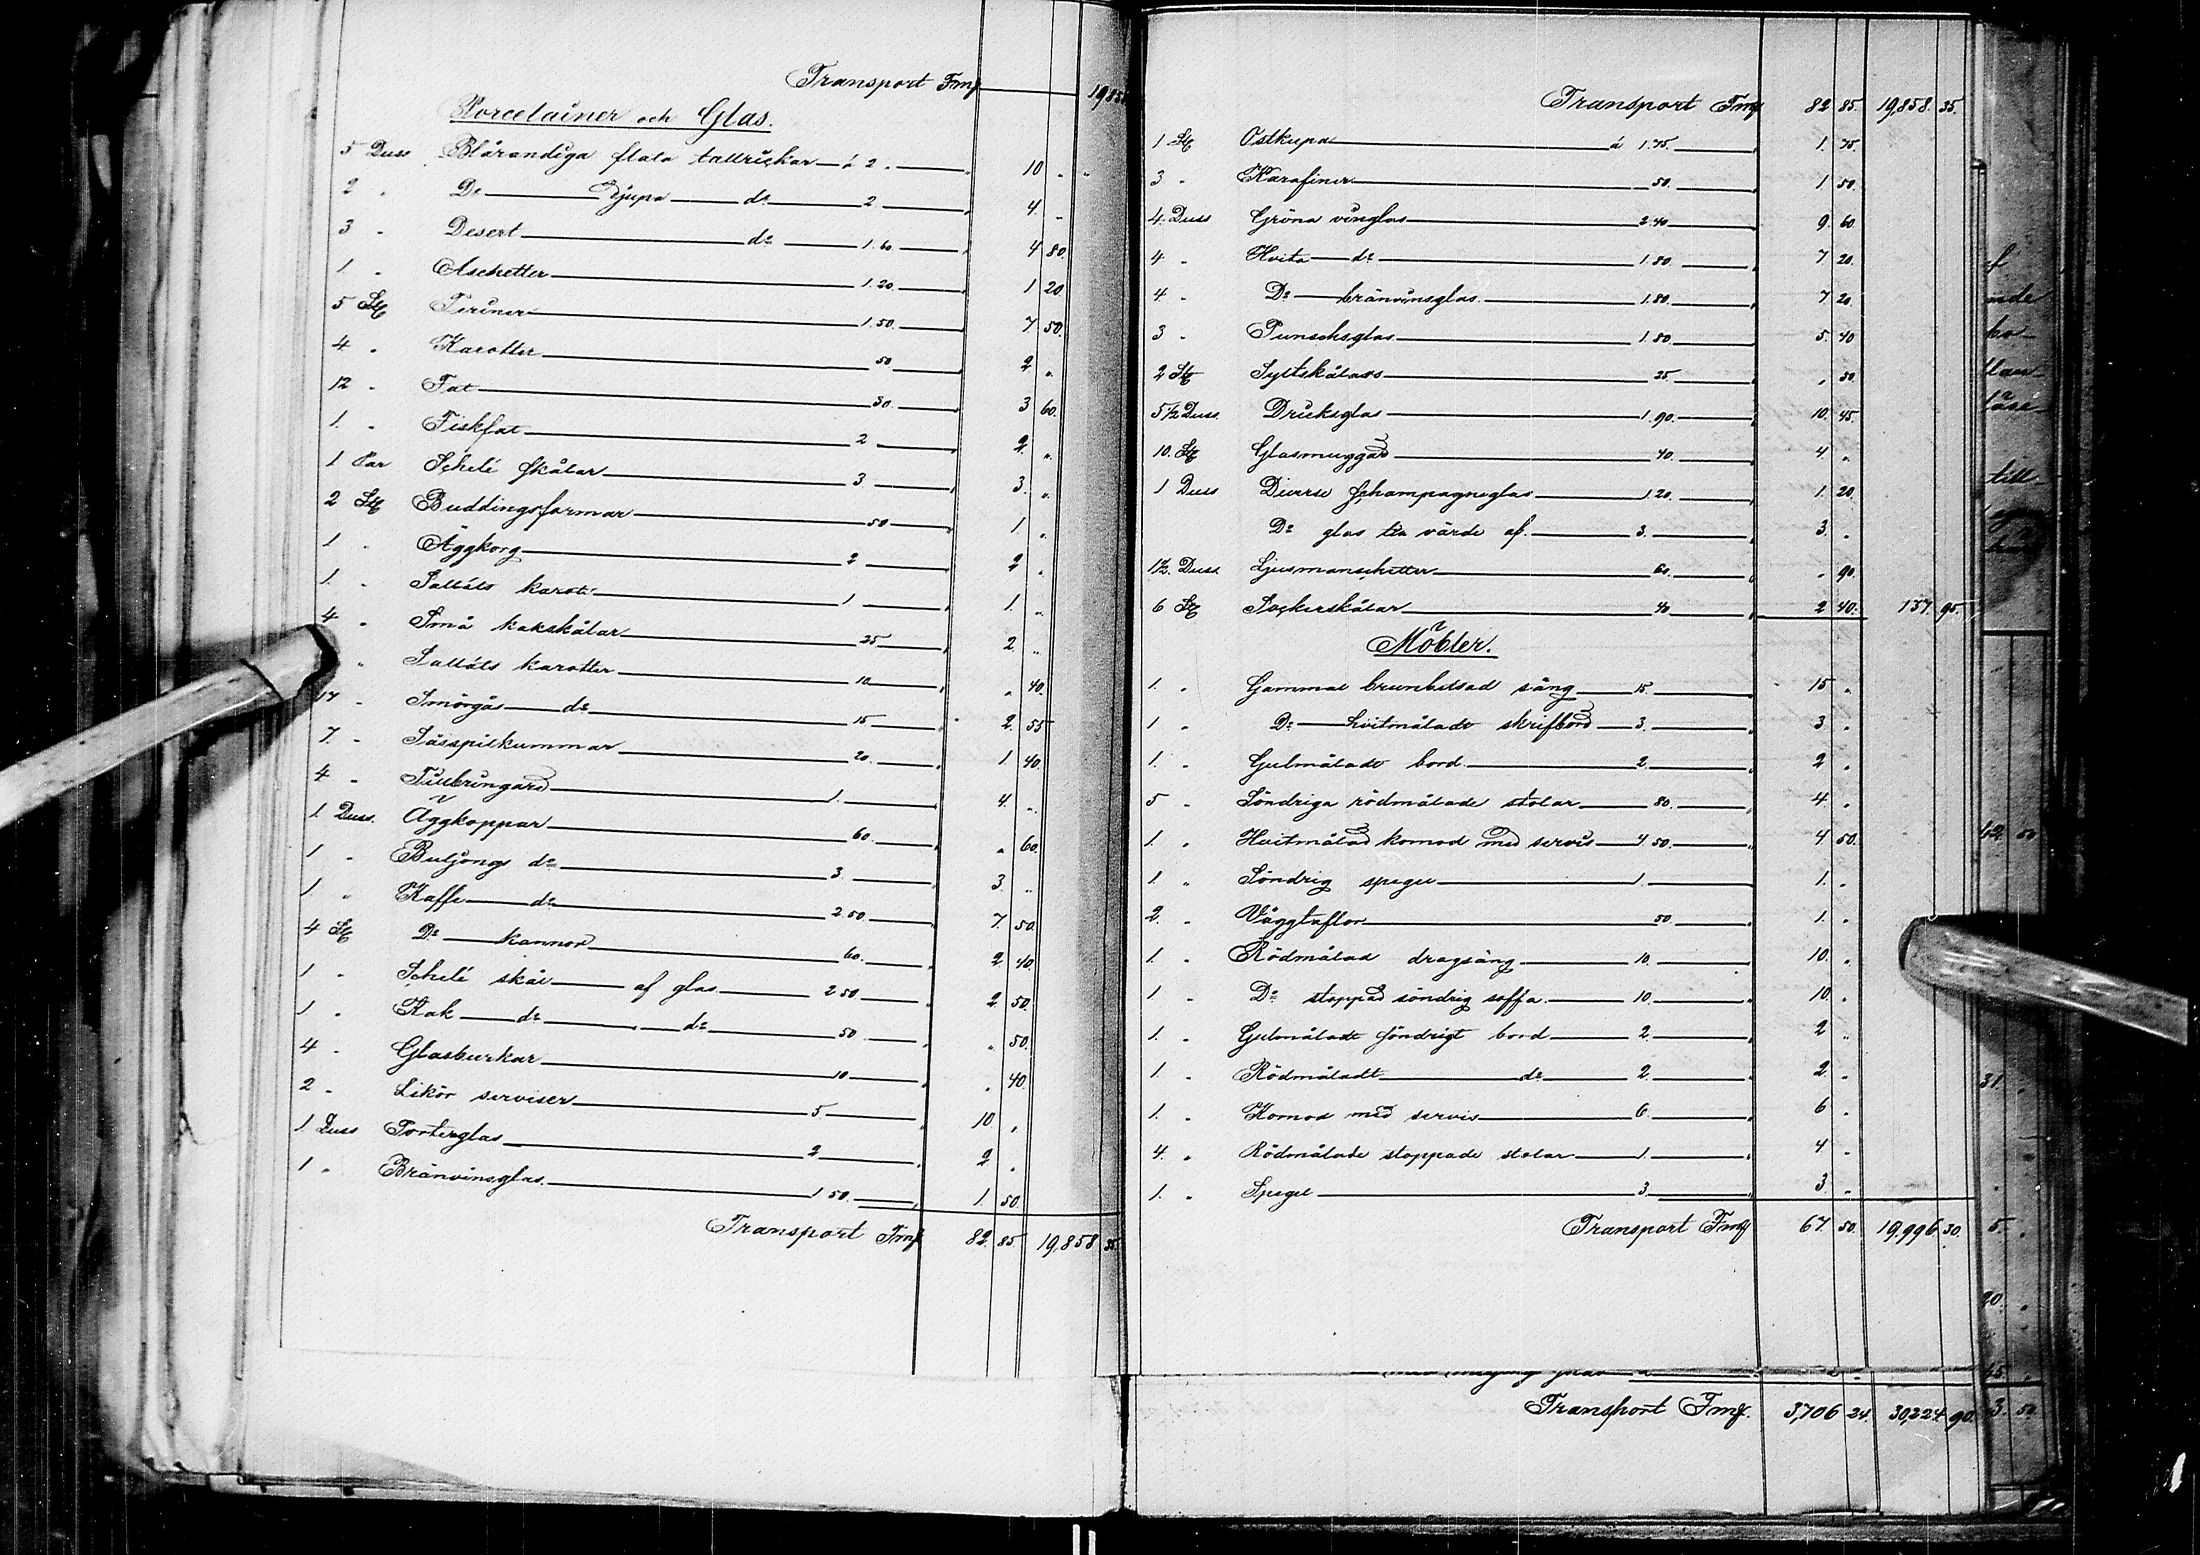 Transport Fmk 19,858
Porcelainer och Glas.
5 Duss Blårandiga flata tallrickar à 2. 10 „
2 „ Do Djupa do 2 4. „
3 „ Desert do 1.60 4 80.
1 „ Aschetter 1.20. 1 20
5 St Teriner 1.50. 7 50.
4 „ Karotter 50 2 „
12 „ Fat 30. 3 60.
1. „ Fiskfat 2 2. „
1 Par Schelé skålar 3 3. „
2 St Buddingsformar 50 1. „
1 „ Äggkorg 2 2 „
1. „ Sallats karott 1 1. „
4 „ Små kakskålar 25 2. „
„ Sallats karotter 10 „ 40.
17 „ Smörgås do 15 2. 55
7. „ Såsspilkummar 20. 1 40.
4 „ Tillbringare 1. 4. „
1. Duss. Äggkoppar 60 „ 60.
1 „ Buljongs do 3 3. „
1. „ Kaffe do 2 50. 7. 50.
4 St Do kannor 60. 2 40.
1 „ Schelé skål af glas 2 50 2 50.
1 „ Kak do do 50 „ 50.
4 „ Glasburkar 10 „ 40.
2 „ Likör serviser 5 10 „
1. Duss Porterglas 2 2 „
1 „ Bränvinsglas. 1 50. 1. 50.
Transport Fmk 82. 85 19,858 35.
Transport Fmk 82 85. 19,858. 35.
1 St Ostkupa à 1.75. 1. 75.
3 „ Karafiner 50. 1 50.
4. Duss Gröna vinglas 2.40 9 60
4 „ Hvita do 1.80. 7 20.
4 „ Do bränvinsglas. 1.80. 7 20.
3 „ Punschsglas 1.80 5. 40
2 St Syltskålar 25 „ 50.
5½ Duss. Dricksglas 1.90. 10. 45.
10. St Glasmuggar 40. 4 „
1 Duss Diverse schampagneglas 1.20. 1. 20.
Do glas till värde af. 3. 3. „
1½. Duss Ljusmanschetter 60. „ 90.
6 St Sockerskålar 40 2 40. 137. 95.
Möbler.
1. „ Gammal brunbetsad säng 15. 15 „
1 „ Do hvitmåladt skrifbord 3. 3 „
1. „ Gulmåladt bord. 2. 2 „
5 „ Söndriga rödmålade stolar 80. 4 „
1. „ Hvitmålad komod med servis 4 50. 4 50.
1. „ Söndrig spegel 1. 1. „
2. „ Väggtaflor 50. 1. „
1. „ Rödmålad dragsäng 10. 10. „
1 „ Do stoppad söndrig soffa. 10. 10. „
1. „ Gulmåladt söndrigt bord 2. 2 „
1. „ Rödmåladt do 2. 2. „
1. „ Komod med servis 6. 6 „
4. „ Rödmålade stoppade stolar 1. 4 „
1. „ Spegel 3. 3. „
Transport Fmk 67. 50. 19,996. 30.
Transport Fmk. 3,706 24. 30,224. 90.